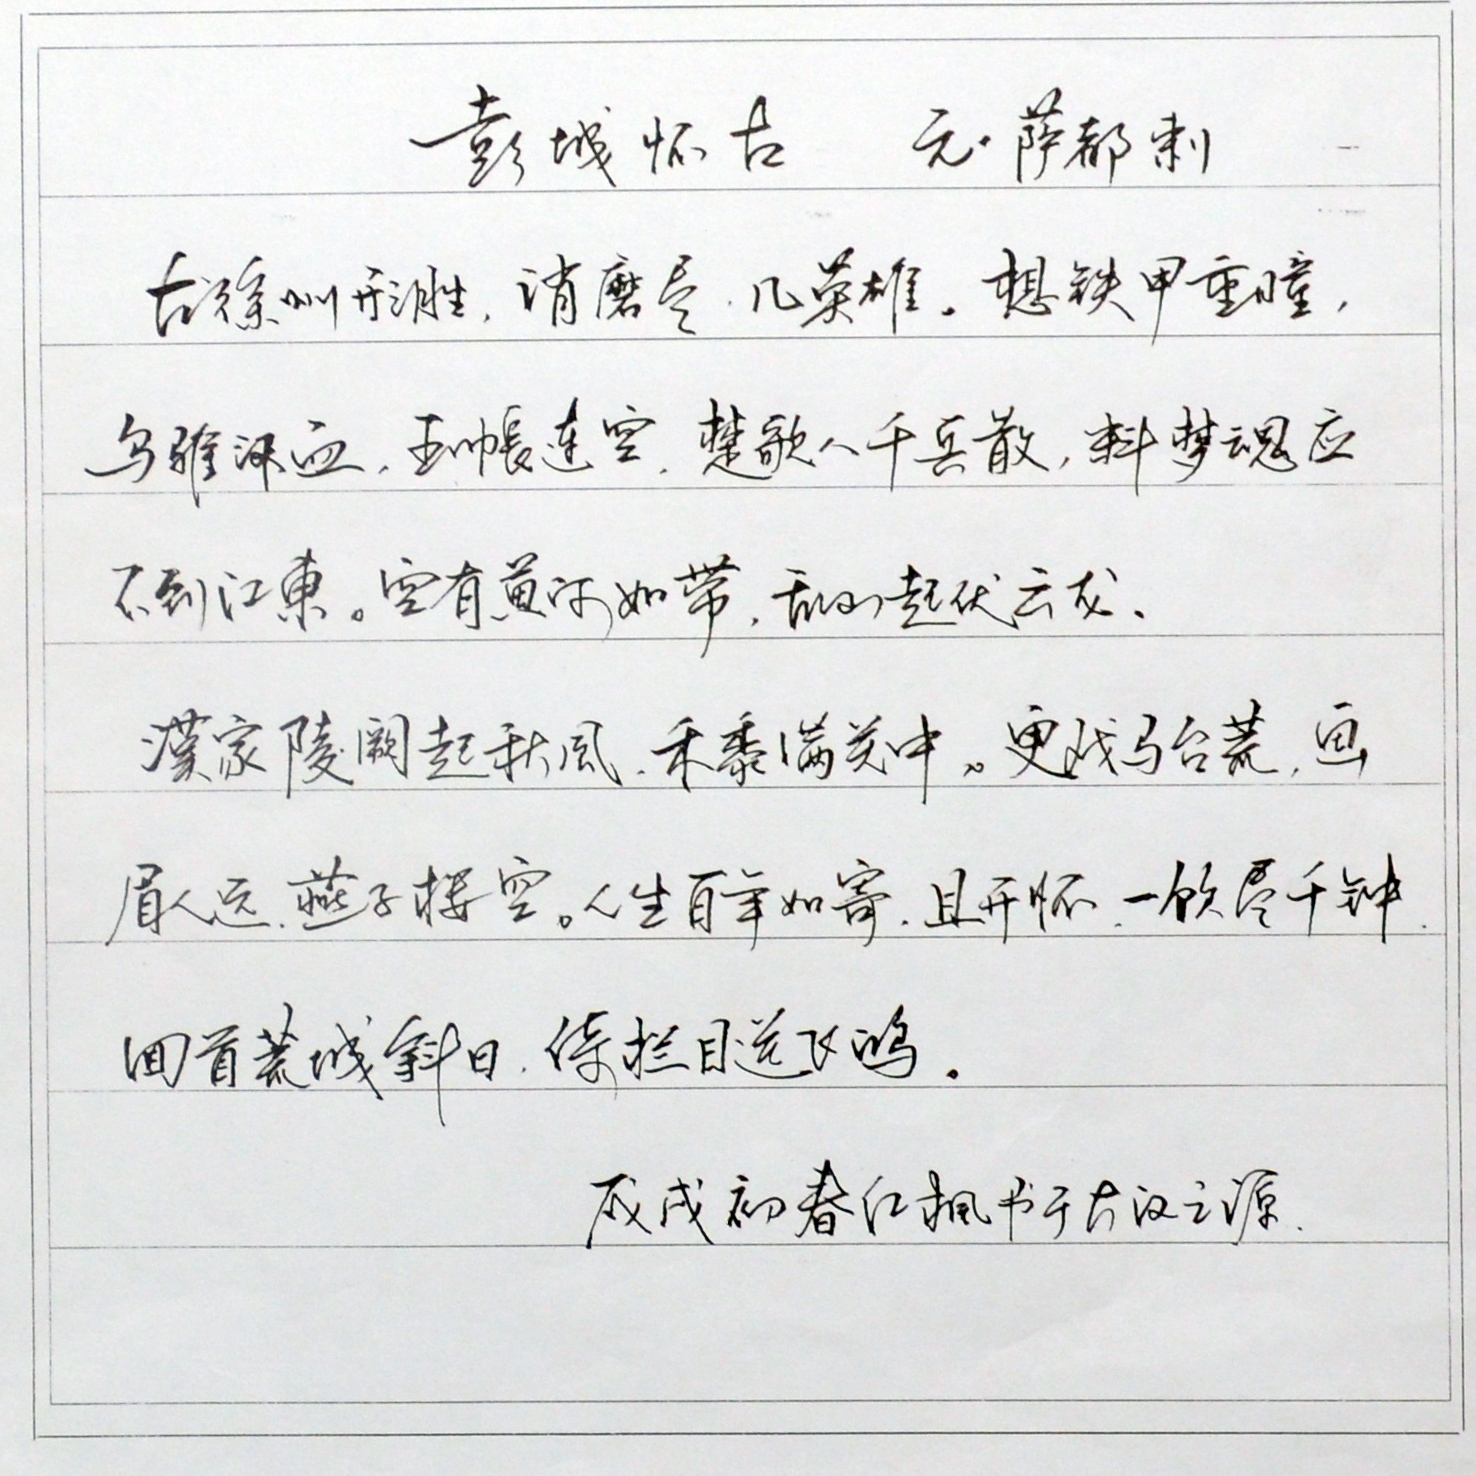 彭城怀古 元·萨都剌
古徐州形胜,消磨尽,几英雄。想铁甲重瞳,
乌骓汗血,玉帐连空,楚歌八千兵散,料梦魂应
不到江東。空有黄河如带,乱山起伏云龙、
漢家陵阙起秋風,禾黍满关中。更戏马台荒,画
眉人远,燕子楼空。人生百年如寄,且开怀,一饮尽千钟.
回首荒城斜日,倚栏目送飞鸿。
戊戌初春江楓书于大汉之源.